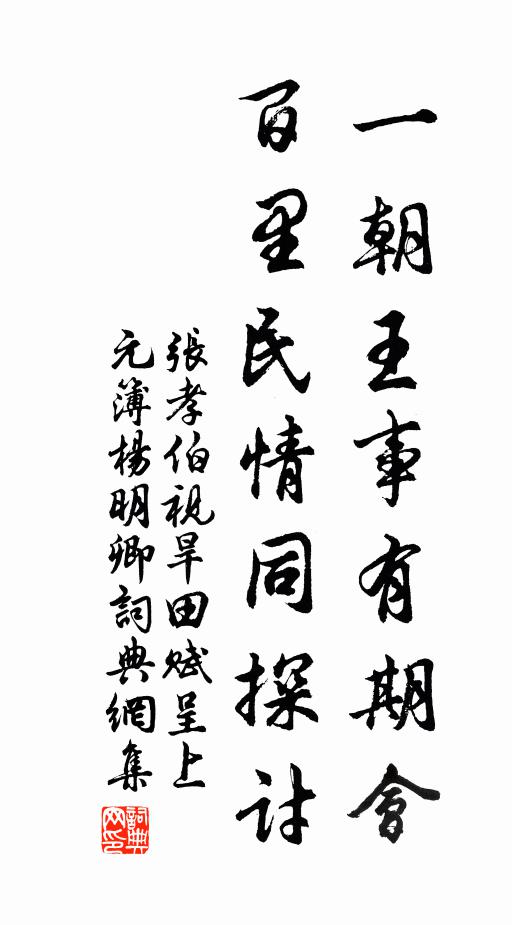 一朝王事有期會
百里民情同探討
張孝伯視旱田賦呈上
元簿楊明卿詞典網集
詞典网印